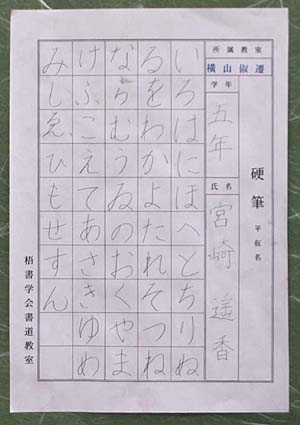 硬筆 平仮名
所属教室
横山
学年
五年
氏名
宮崎 遥香
いろはにほへとちりぬ
るをわかよたれそつね
ならむうゐのおくやま
けふこえてあさきゆめ
みしゑひもせすん
梧書学会書道教室